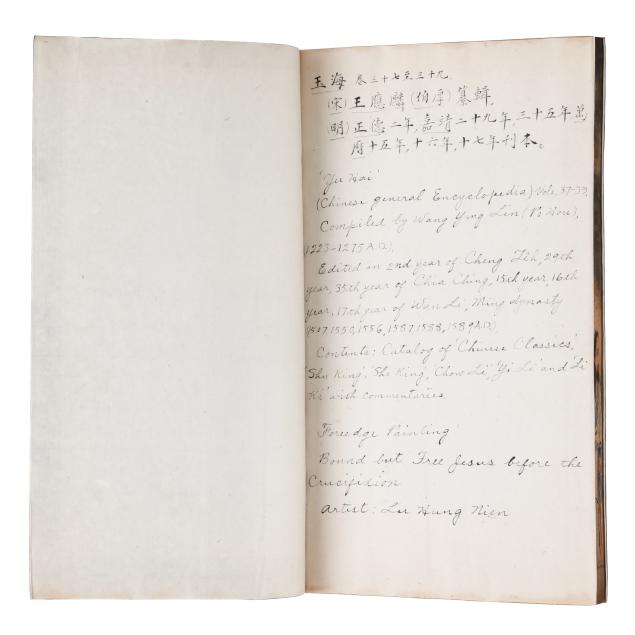 玉海 卷三十七至三十九
(宋)王應麟(伯厚)纂輯.
(明)正德二年,嘉靖二十九年,三十五年萬
曆十五年,十六年,十七年刊本。
'Yu Hai'
(Chinese general Encyclopedia) Vols. 37-39,
Compiled by Wang Ying Lin (Po Hou),
(1223-1275 A.D.).
Edited in 2nd year of Cheng Teh, 29th
year, 35th year of Chia Ching, 15th year, 16th
year, 17th year of Wan Li, Ming dynasty
(1507, 1550, 1556, 1587, 1588, 1589 A.D.)
Contents: Catalog of 'Chinese Classics',
'Shu King', 'She King', 'Chow Li', 'Yi Li' and 'Li
Ki' with commentaries.
Foreedge Painting
Bound but Free Jesus before the
Crucifixion
Artist: Lu Hung Nien